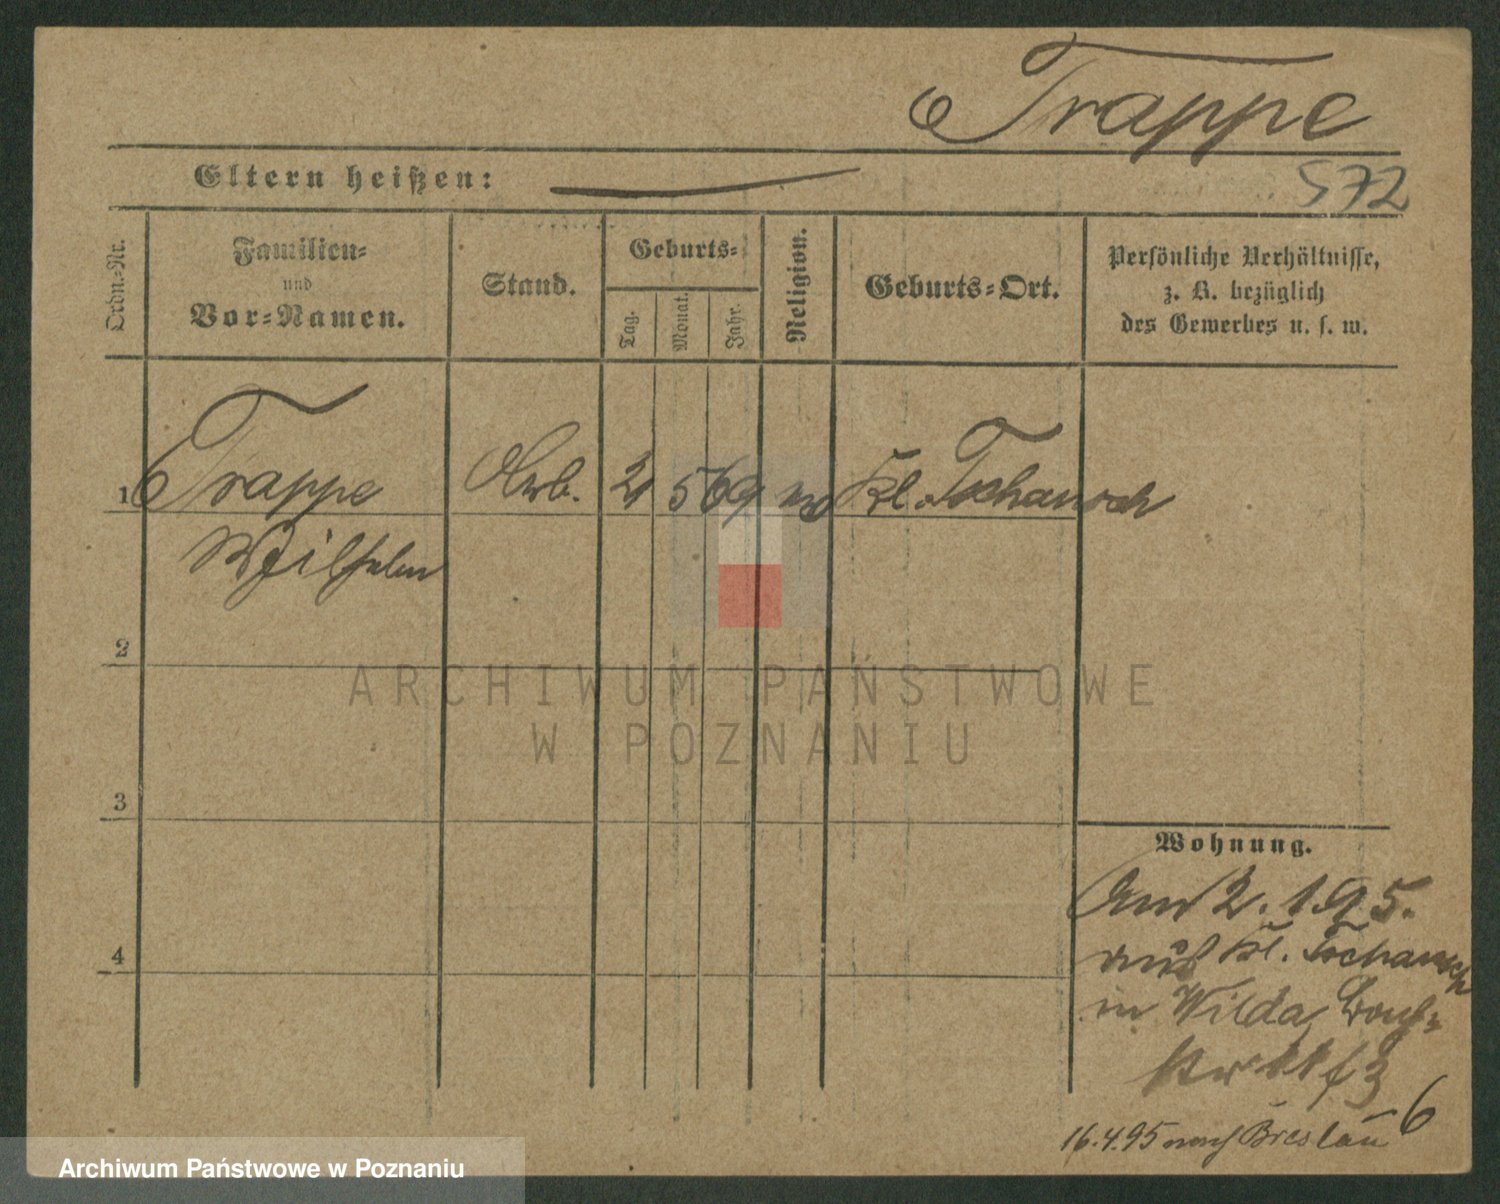 Trappe
Eltern heißen:
572
Ordn.-Nr.
Familien-
und
Vor-Namen.
Stand.
Geburts-
Tag.
Monat.
Jahr.
Religion.
Geburts-Ort.
Persönliche Verhältnisse,
z. B. bezüglich
des Gewerbes u. s. w.
1 Trappe Arb. 21 5 69 Kl. Tschansch
Wilhelm
2
3
4
ARCHIWUM PAŃSTWOWE
W POZNANIU
Wohnung.
Am 2. 1. 95.
aus Kl. Tschansch
in Wilda
6
16.4.95 nach Breslau
Archiwum Państwowe w Poznaniu